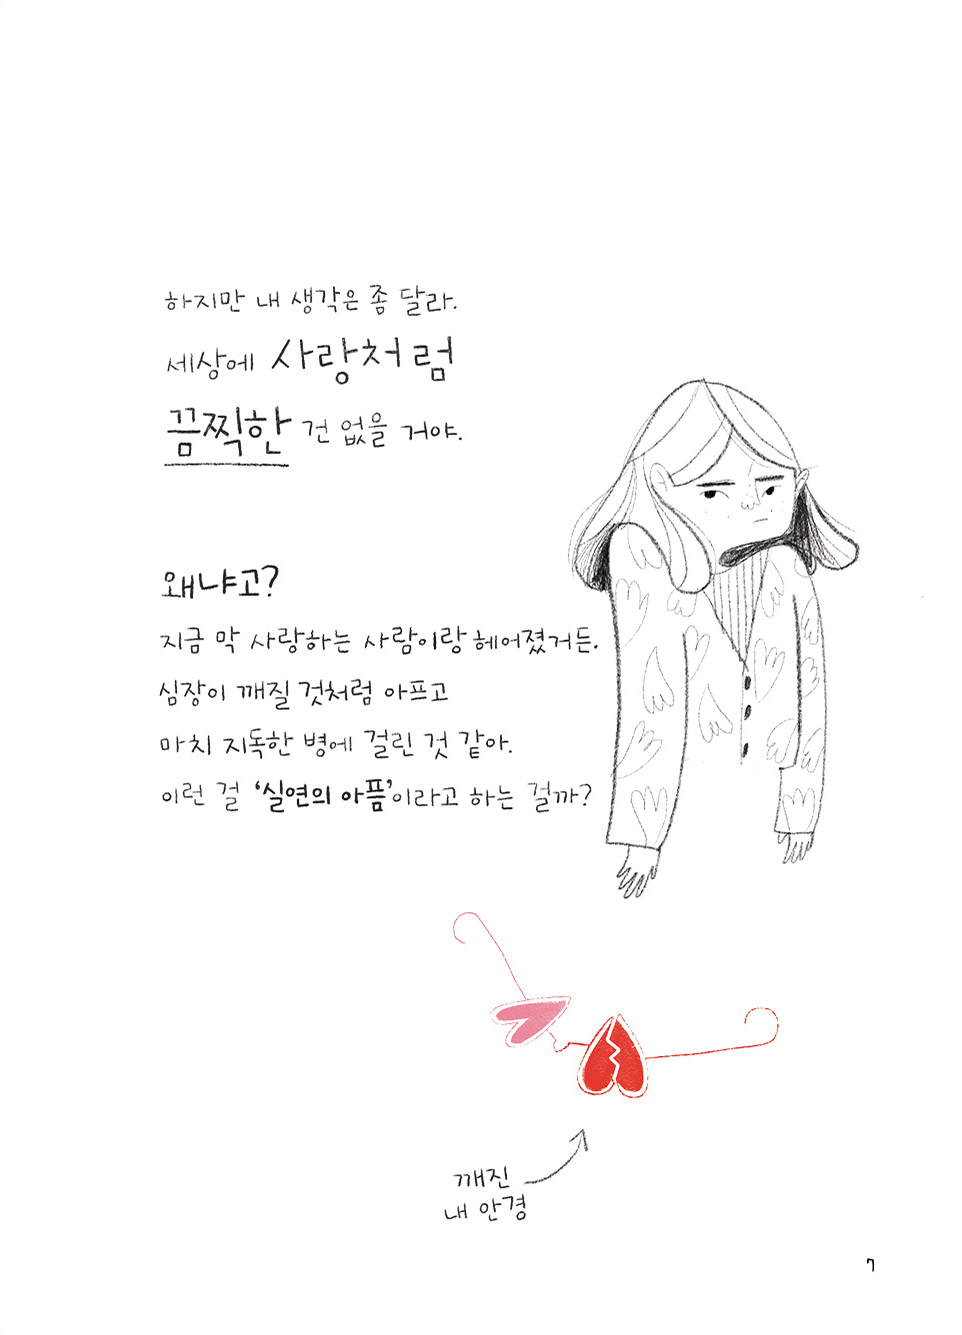 하지만 내 생각은 좀 달라.
세상에 사랑처럼
끔찍한 건 없을 거야.
왜냐고?
지금 막 사랑하는 사람이랑 헤어졌거든.
심장이 깨질 것처럼 아프고
마치 지독한 병에 걸린 것 같아.
이런 걸 ‘실연의 아픔’이라고 하는 걸까?
깨진
내 안경
7